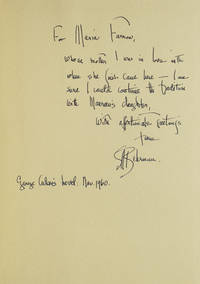 For Maria Farrow,
whose mother I was in love with
when she first came here — I am
sure I could continue the tradition
with Maureen's daughter,
with affectionate greetings
from
SN Behrman
George Cukor's house: Nov. 1960.